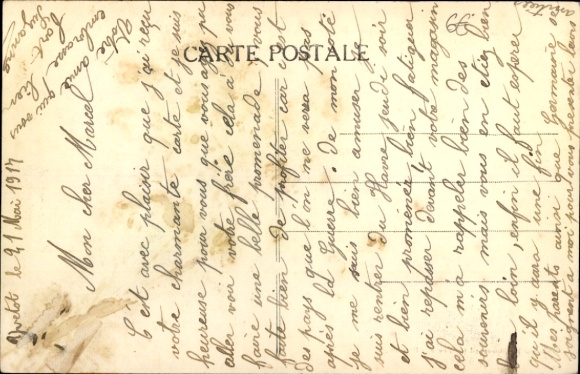 CARTE POSTALE
Yvetot le 21 Mai 1917
Mon cher Marcel
C'est avec plaisir que j'ai reçu
votre charmante carte et je suis
heureuse pour vous que vous ayez pu
aller voir votre frère cela a du vous
faire une belle promenade vous
faite bien de profiter car c'est
des pays que l'on ne verra pas
après la Guerre. de mon coté
je me suis bien amuser
suis rentrer du Havre jeudi soir
et bien promenée bien fatiguer
j'ai repasser devant votre magasin
cela m'a rappeler bien des
souvenirs mais vous en étiez bien
loin, enfin il faut espérer
qu'il y aura une fin Germaine et
Mes parents ainsi que
joignent a moi pour vous présenter leurs
amitiées
Votre amie qui vous
embrasse bien
fort
Suzanne